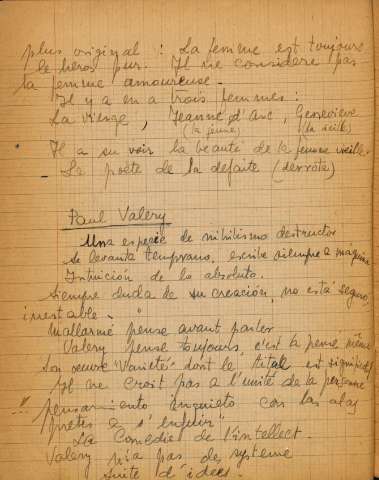 plus original : La femme est toujours
le héros pur. Il ne considère pas
la femme amoureuse.
Il y a en a trois femmes :
La vierge, Jeanne d'Arc, Geneviève
(la jeune) (la vieille)
Il a su voir la beauté de la femme vieille.
Le poète de la défaite (derrota)
Paul Valery
Una especie de nihilismo destructor
se levanta temprano, escribe siempre a maquina
Intuición de lo absoluto.
Siempre duda de su creación, no está seguro,
inestable.
Mallarmé pense avant parler
Valery pense toujours, c'est la pensé même
Son oeuvre "Varietés" dont le titol est significatif
Il ne croit pas a l'unité de la personne
"pensamiento inquieto con las alas
pretes a s'enfuir"
La Comedie de l'intellect.
Valery n'a pas de systeme
suite d'idées.